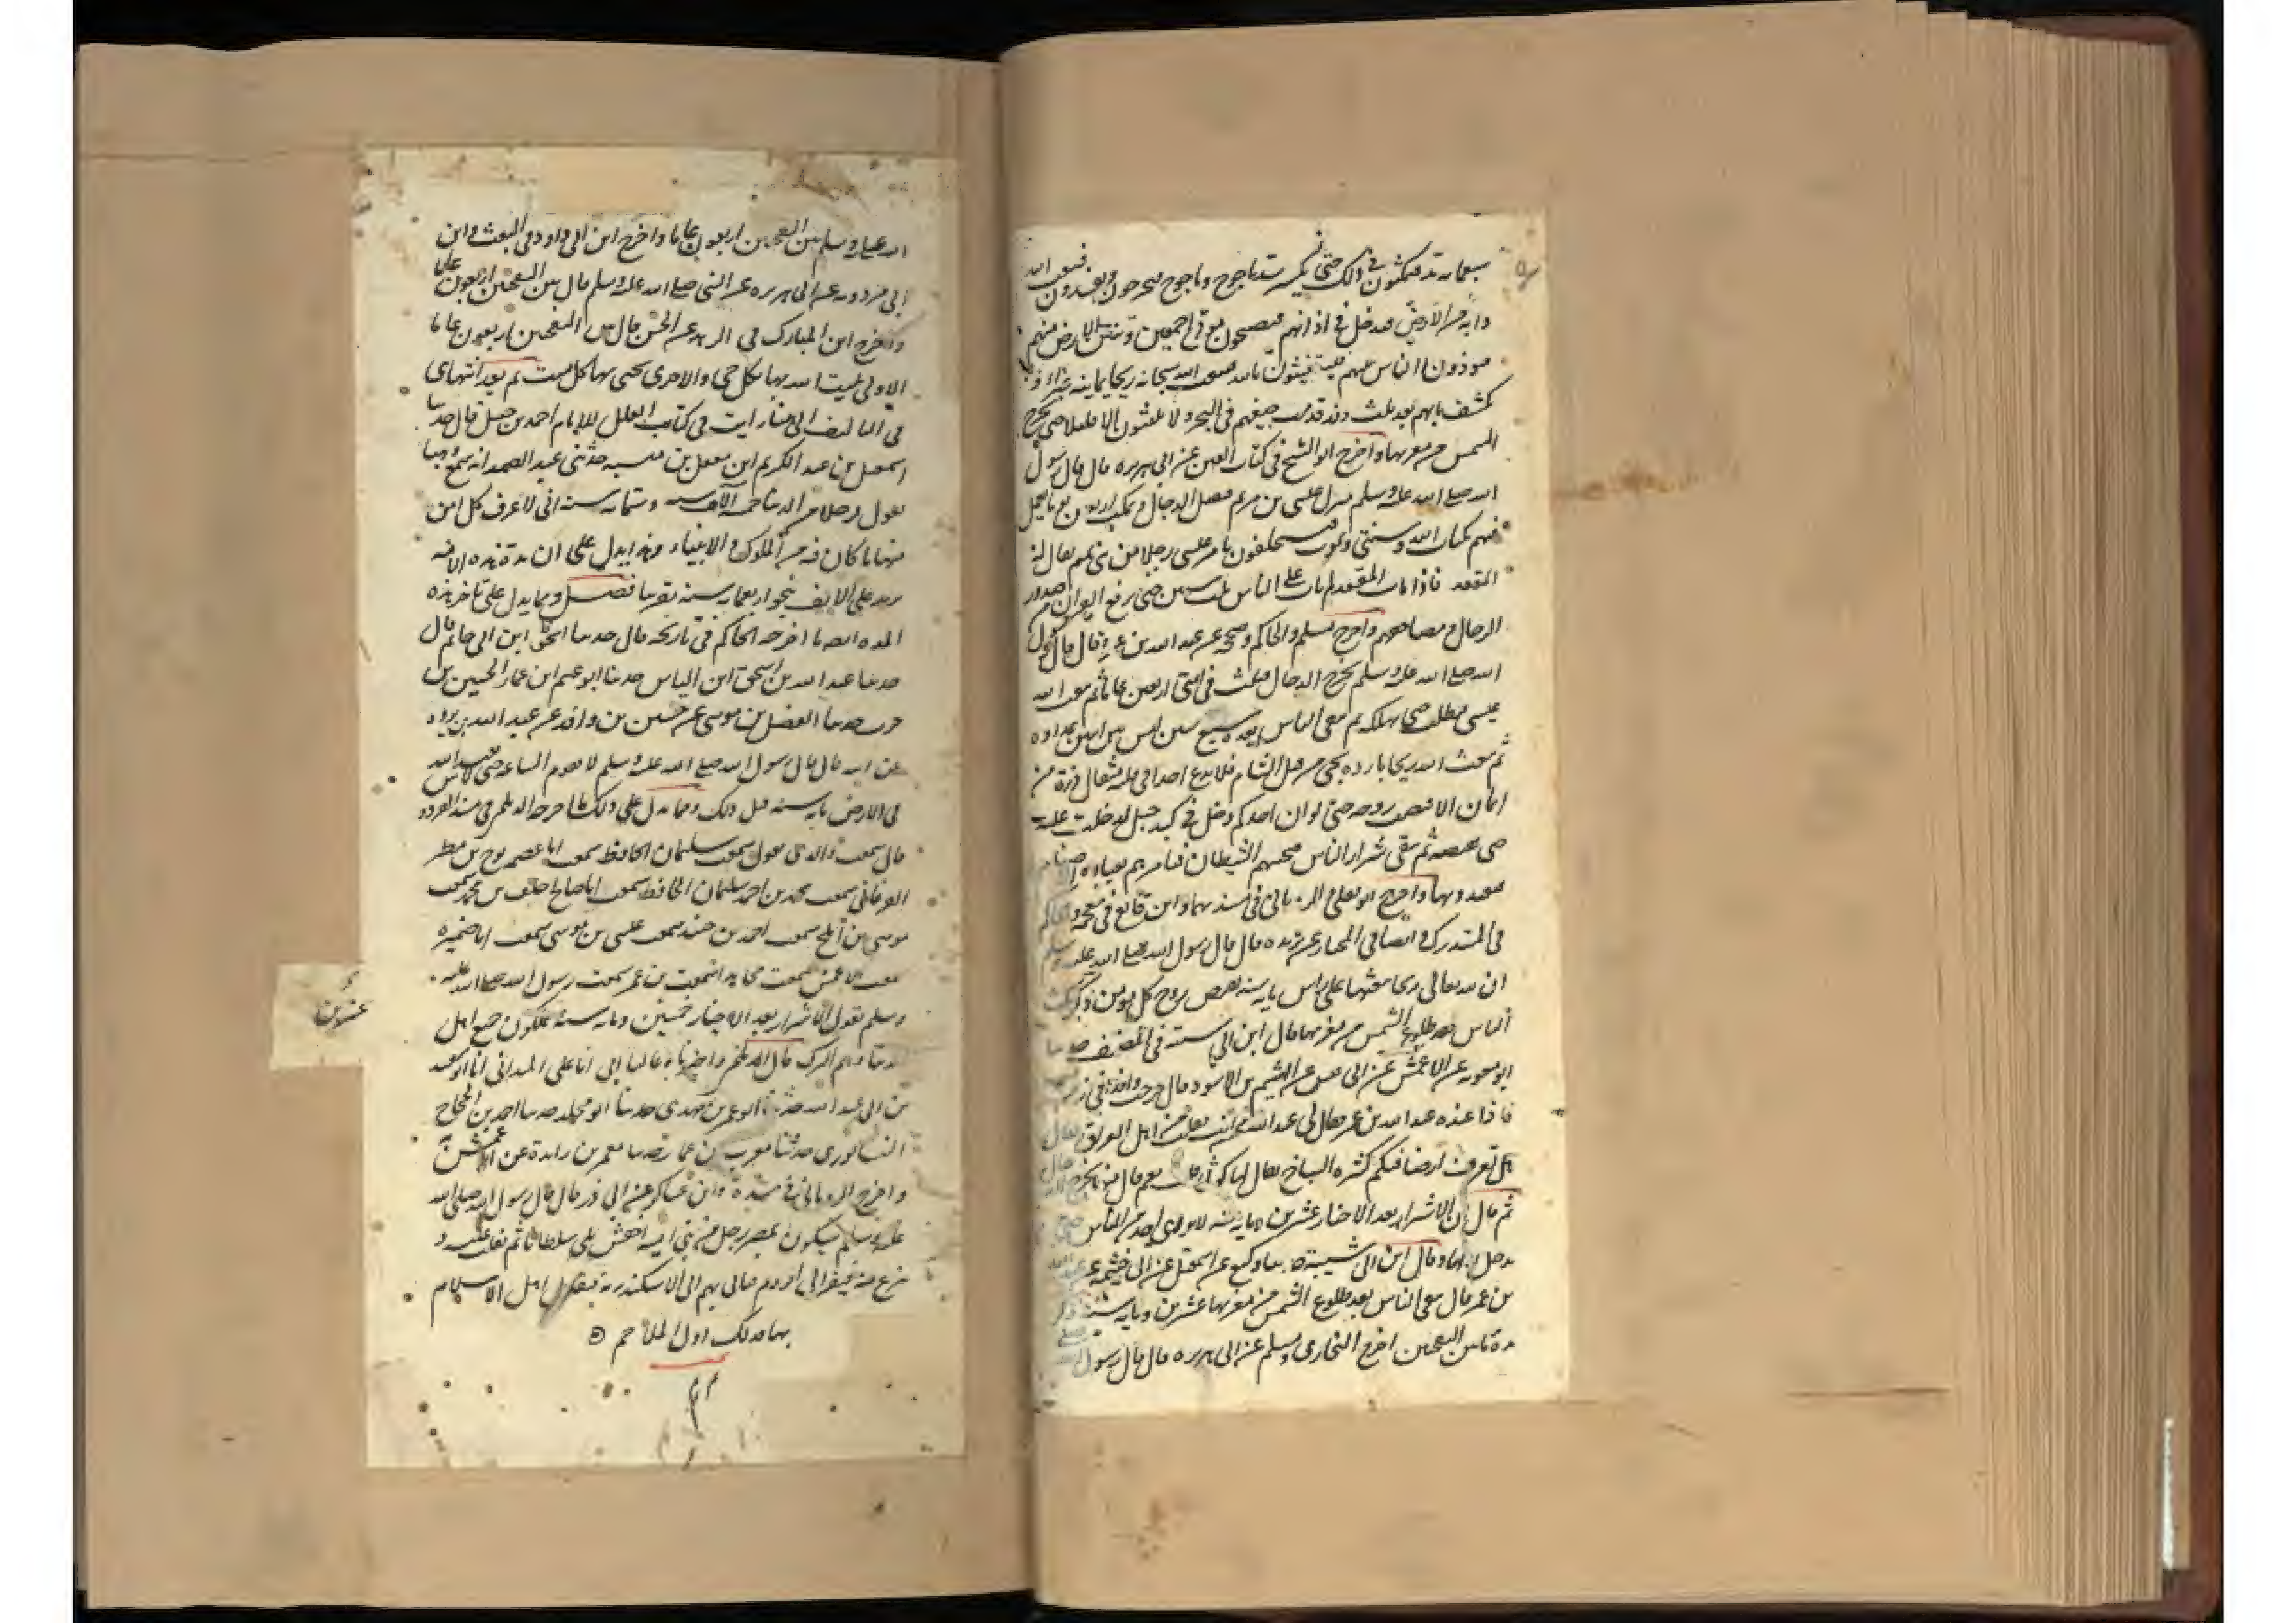 سبعمائة سنة فيمكثون في ذلك حتى يكسر سد ياجوج وماجوج فيخرجون ويفسدون فيبعث الله
دابة من الارض فتدخل في اذانهم فيصبحون موتى اجمعين وتنتن الارض منهم
فيوذون الناس بنتنهم فيستغيثون بالله فيبعث الله سبحانه ريحا يمانية غبراء
يكشف ما بهم بعد ثلث وقد قذفت جيفهم في البحر ولا يلبثون الا قليلا حتى تخرج
الشمس من مغربها واخرج ابو الشيخ في كتاب الفتن عن ابي هريرة قال قال رسول
الله صلى الله عليه وسلم ينزل عيسى بن مريم فيقتل الدجال ويمكث اربعين عاما يعمل
فيهم بكتاب الله وسنتي ويموت فيستخلفون بامر عيسى رجلا من بني تميم يقال له
المقعد فاذا مات المقعد لم يات على الناس ثلث سنين حتى يرفع القران من صدور
الرجال ومصاحفهم واخرج مسلم والحاكم وصححه عن عبد الله بن عمرو قال قال رسول
الله صلى الله عليه وسلم يخرج الدجال فيلبث في امتي اربعين عاما ثم يبعث الله
عيسى فيطلبه حتى يهلكه ثم يبقى الناس بعده سبع سنين ليس بين اثنين عداوة
ثم يبعث الله ريحا باردة تجئ من قبل الشام فلا يدع احدا في قلبه مثقال ذرة من
ايمان الا قبضت روحه حتى لو ان احدكم دخل في كبد جبل لدخلت عليه
حتى تقبضه ثم يبقى شرار الناس فيجيبهم الشيطان فيامرهم بعبادة الاصنام
فيعبدونها واخرج ابو يعلى الروياني في مسنديهما وابن قانع في معجمه والحاكم
في المستدرك وايضا في المختارة عن بريدة قال قال رسول الله صلى الله عليه وسلم
ان لله تعالى ريحا يبعثها على راس ماية سنة تقبض روح كل مومن
الناس بعد طلوع الشمس من مغربها قال ابن ابي شيبة في المصنف حدثنا
ابو معوية عن الاعمش عن ابي قيس عن الهيثم بن الاسود قال خرجت وافدا في زمن
فاذا عنده عبد الله بن عمر فقال لي عبد الله ممن انت فقلت من اهل العراق فقال
هل تعرف ارضا فيكم كثيرة السباخ يقال لها كوثى قلت نعم قال منها يخرج الدجال
ثم قال ان الاشرار بعد الاخيار عشرين وماية سنة لا يدري احد من الناس متى
يدخل اولها وقال ابن ابي شيبة حدثنا وكيع عن اسمعيل عن ابي خيثمة عن عبد الله
بن عمر قال يبقى الناس بعد طلوع الشمس من مغربها عشرين وماية سنة ذكر
مدة ما بين النفختين اخرج البخاري ومسلم عن ابي هريرة قال قال رسول الله صلى
الله عليه وسلم بين النفختين اربعون عاما واخرج ابن ابي داود في البعث وابن
ابي مردويه عن ابي هريرة عن النبي صلى الله عليه وسلم قال بين النفختين اربعون عاما
واخرج ابن المبارك في الزهد عن الحسن قال بين النفختين اربعون عاما
الاولى يميت الله بها كل حي والاخرى يحيي بها كل ميت ثم بعد انتهاي
في التاليف الى هنا رايت في كتاب العلل للامام احمد بن حنبل قال حدثنا
اسمعيل بن عبد الكريم ابن معقل بن منبه حدثني عبد الصمد انه سمع وهبا
يقول قد خلا من الدنيا خمسة الاف سنة وستماية سنة اني لاعرف كل زمن
منها ما كان فيه من الملوك والانبياء وهذا يدل على ان مدة هذه الامة
تزيد على الالف بنحو اربعماية سنة تقريبا فصل ومما يدل على تاخر هذه
المدة ايضا ما اخرجه الحاكم في تاريخه قال حدثنا اسحق ابن ابي حاتم قال
حدثنا عبد الله بن اسحق ابن الياس حدثنا ابو عمار الحسين بن
حريث حدثنا الفضل بن موسى عن حسين بن واقد عن عبد الله بن بريدة
عن ابيه قال قال رسول الله صلى الله عليه وسلم لا تقوم الساعة حتى لا يعبد الله
في الارض ماية سنة قبل ذلك ومما يدل على ذلك ما اخرجه الديلمي في مسند الفردوس
قال سمعت والدي يقول سمعت سليمان الحافظ سمعت ابا عصمة نوح بن مطر
الفرغاني سمعت محمد بن احمد سليمان الحافظ سمعت ابا صالح خلف بن محمد سمعت
موسى بن افلح سمعت احمد بن جنيد سمعت عيسى بن موسى سمعت ابا حمزة
سمعت الاعمش سمعت مجاهدا سمعت بن عمر سمعت رسول الله صلى الله عليه
وسلم يقول الاشرار بعد الاخيار خمسين وماية سنة يملكون جميع اهل
الدنيا وهم الترك قال الديلمي واخبرناه عاليا ابي انا علي الميداني انا ابو سعيد
بن ابي عبد الله حدثنا ابو عمر بن مهدي حدثنا ابو مخلد حدثنا احمد بن الحجاج
النيسابوري حدثنا معرب بن عمار حدثنا معمر بن زايدة عن الاعمش
واخرج الروياني في مسنده وابن عساكر عن ابي ذر قال قال رسول الله صلى الله
عليه وسلم سيكون بمصر رجل من بني امية اخنس يلي سلطانا ثم يغلب عليه و
ينزع منه فيفر الى الروم فياتي بهم الى الاسكندرية فيقاتل اهل الاسلام
بها فذلك اول الملاحم
عشرين